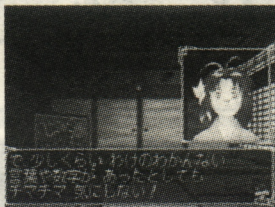 で 少しくらい わけのわかんない
言葉や数字が あったとしても
チマチマ 気にしない!